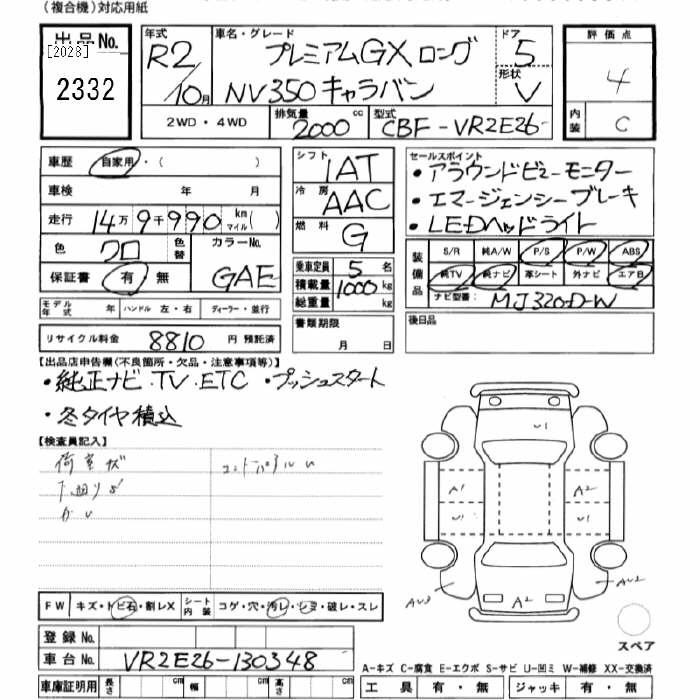 (複合機)対応用紙
出品No. [2028] 2332
年式 R2/10月
車名・グレード プレミアムGX ロング NV350キャラバン
ドア 5
形状 V
評価点 4
内装 C
2WD・4WD
排気量 2000 cc
型式 CBF-VR2E26-
車歴 自家用・( )
車検 年 月
走行 14万9千990 km マイル( )
色 クロ 色替 カラーNo. GAE
保証書 有 無
モデル年式 年 ハンドル 左・右 ディーラー・並行
リサイクル料金 8810 円 預託済
シフト IAT
冷房 AAC
燃料 G
乗車定員 5 名
積載量 1000 kg
総重量 kg
書類期限 月 日
セールスポイント
・アラウンドビューモニター
・エマージェンシーブレーキ
・LEDヘッドライト
装備品 S/R 純A/W P/S P/W ABS
純TV 純ナビ 革シート 外ナビ エアB
ナビ型番 MJ320D-W
後日品
【出品店申告欄(不良箇所・欠品・注意事項等)】
・純正ナビ.TV.ETC ・プッシュスタート
・冬タイヤ積込
【検査員記入】
荷室キズ
下廻りサ
U1
A1 A2
U1 U1
A2
スペア
FW キズ・トビ石・割レX シート内装 コゲ・穴・汚レ・シミ・破レ・スレ
登録No.
車台No. VR2E26-130348
車庫証明用 長さ cm 幅 cm 高さ cm
A-キズ C-腐食 E-エクボ S-サビ U-凹ミ W-補修 XX-交換済
工具 有・無 ジャッキ 有・無